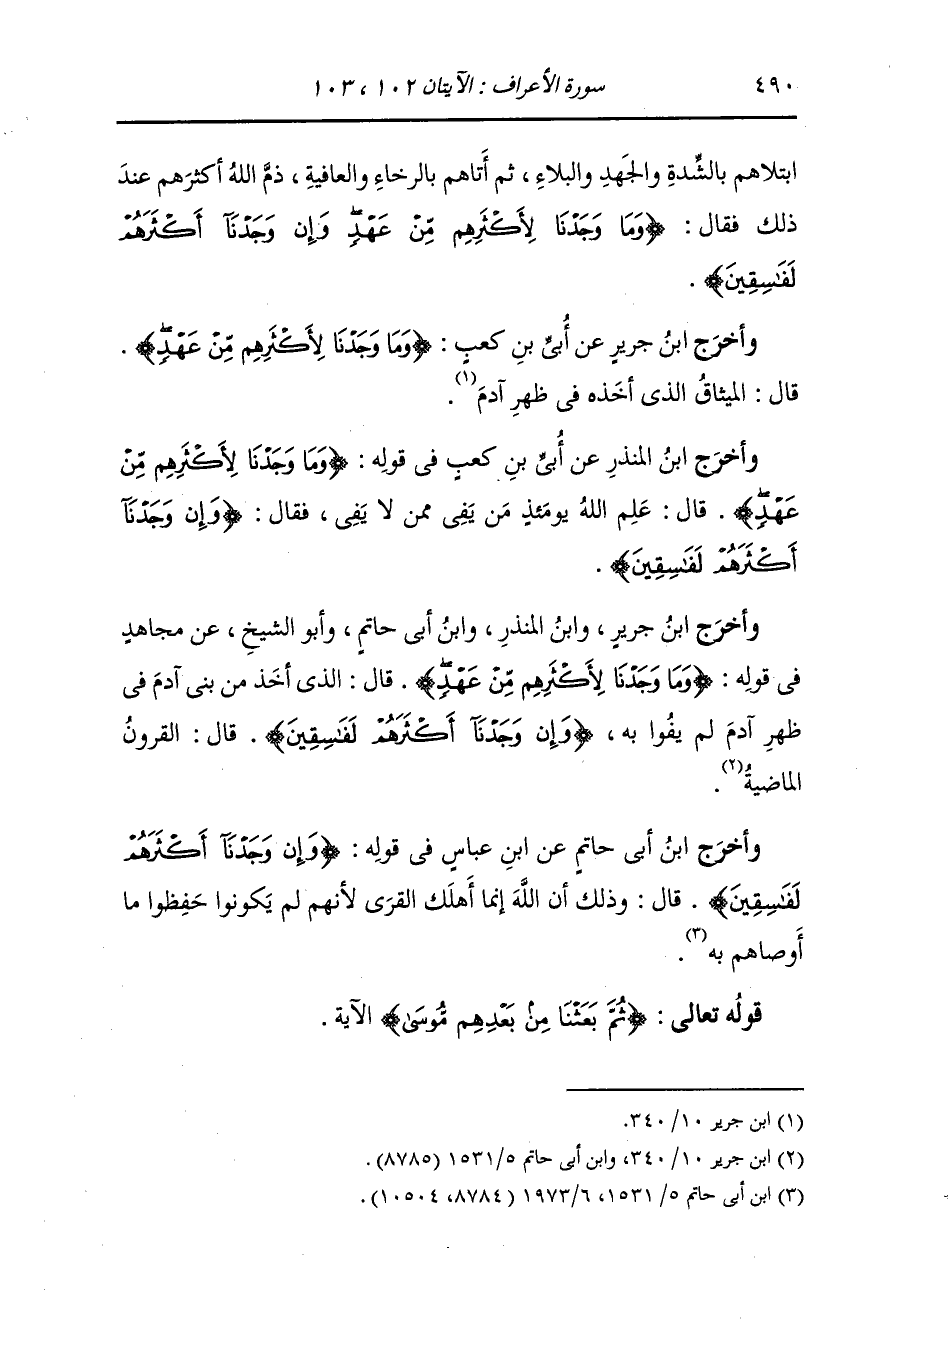 ٤٩٠ سورة الأعراف : الآيتان ١٠٢ ، ١٠٣
ابتلاهم بالشِّدةِ والجَهدِ والبلاءِ ، ثم أَتاهم بالرخاءِ والعافيةِ ، ذمَّ اللهُ أكثرَهم عندَ
ذلك فقال : ﴿وَمَا وَجَدْنَا لِأَكْثَرِهِم مِّنْ عَهْدٍۖ وَإِن وَجَدْنَآ أَكْثَرَهُمْ
لَفَٰسِقِينَ﴾ .
وأخرَج ابنُ جريرٍ عن أُبىِّ بنِ كعبٍ : ﴿وَمَا وَجَدْنَا لِأَكْثَرِهِم مِّنْ عَهْدٍۖ﴾ .
قال : الميثاقُ الذى أخَذه فى ظهرِ آدمَ(١) .
وأخرَج ابنُ المنذرِ عن أُبىِّ بنِ كعبٍ فى قولِه : ﴿وَمَا وَجَدْنَا لِأَكْثَرِهِم مِّنْ
عَهْدٍۖ﴾ . قال : عَلِم اللهُ يومَئذٍ مَن يَفِى ممن لا يَفِى ، فقال : ﴿وَإِن وَجَدْنَآ
أَكْثَرَهُمْ لَفَٰسِقِينَ﴾ .
وأخرَج ابنُ جريرٍ ، وابنُ المنذرِ ، وابنُ أبى حاتمٍ ، وأبو الشيخِ ، عن مجاهدٍ
فى قولِه : ﴿وَمَا وَجَدْنَا لِأَكْثَرِهِم مِّنْ عَهْدٍۖ﴾ . قال : الذى أخَذ من بنى آدمَ فى
ظهرِ آدمَ لم يفُوا به ، ﴿وَإِن وَجَدْنَآ أَكْثَرَهُمْ لَفَٰسِقِينَ﴾ . قال : القرونُ
الماضيةُ(٢) .
وأخرَج ابنُ أبى حاتمٍ عن ابنِ عباسٍ فى قولِه : ﴿وَإِن وَجَدْنَآ أَكْثَرَهُمْ
لَفَٰسِقِينَ﴾ . قال : وذلك أن اللَّهَ إنما أَهلَك القرَى لأنهم لم يَكونوا حَفِظوا ما
أَوصاهم به(٣) .
قولُه تعالى : ﴿ثُمَّ بَعَثْنَا مِنۢ بَعْدِهِم مُّوسَىٰ﴾ الآية .
(١) ابن جرير ١٠/ ٣٤٠.
(٢) ابن جرير ١٠/ ٣٤٠، وابن أبى حاتم ٥/ ١٥٣١ (٨٧٨٥) .
(٣) ابن أبى حاتم ٥/ ١٥٣١، ٦/ ١٩٧٣ (٨٧٨٤، ١٠٥٠٤) .